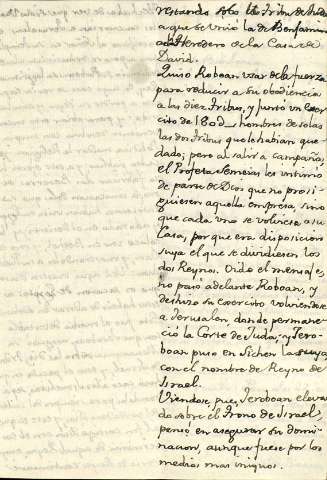 restando solo la Tribu de Juda
a que se unió la de Benjamin
al Heredero de la Casa de
David.
Quiso Roboan usar de la fuerza
para reducir a su obediencia
a las diez Tribus, y juntó un Exer
cito de 180 hombres de solas
las dos Tribus que le habian que-
dado; pero al salir a campaña,
el Profeta Semeias les intimó
de parte de Dios que no prosi-
guiesen aquella empresa, sino
que cada uno se volviese a su
Casa, porque era disposicion
suya el que se dividiesen los
dos Reynos. Oido el mensaje,
no pasó adelante Roboan, y
deshizo su exercito volviendose
a Jerusalen donde permane-
ció la Corte de Juda; y Jero-
boan puso en Sichen la suya,
con el nombre de Reyno de
Israel.
Viendose, pues, Jeroboan eleva
do sobre el Trono de Israel,
pensó en asegurar su domi-
nacion, aunque fuese por los
medios mas iniquos.